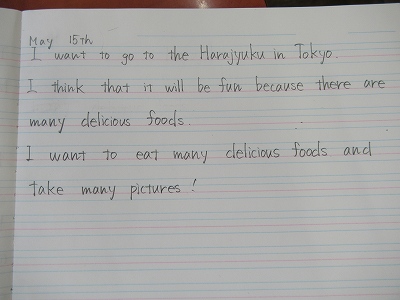 May 15th
I want to go to the Harajyuku in Tokyo.
I think that it will be fun because there are
many delicious foods.
I want to eat many delicious foods and
take many pictures!